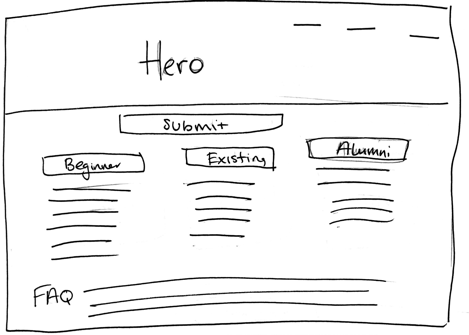 Hero
Submit
Beginner
Existing
Alumni
FAQ